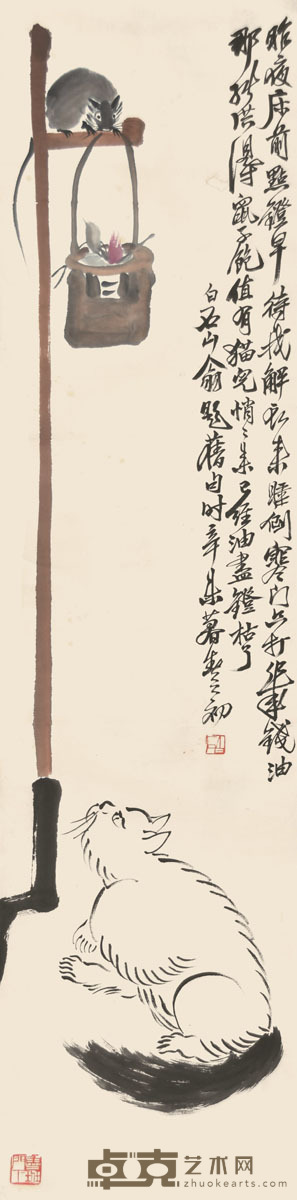 昨夜床前點鐙早待我解衣來睡倒寒门只打一錢油
那能供得鼠子飽值有猫兒悄〻來已經油盡鐙枯了
白石山翁題舊句时辛未暮春之初
卓克艺术网
www.zhuokearts.com